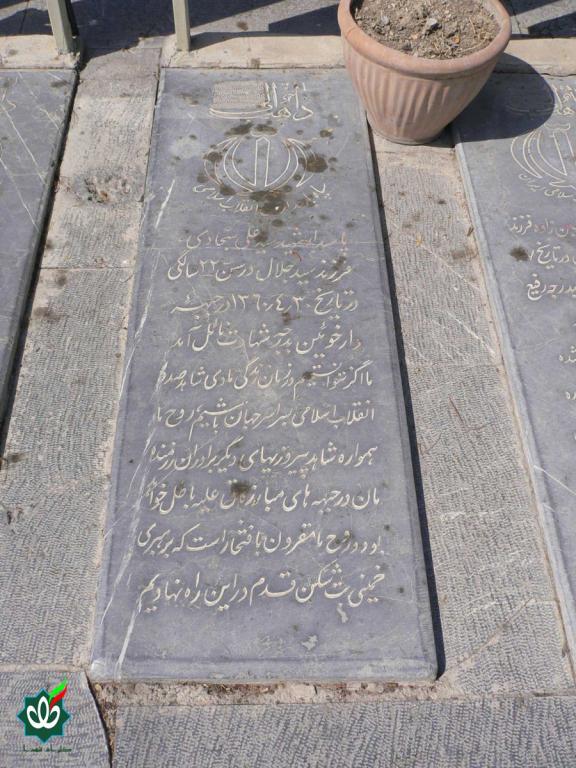 پاسداران انقلاب اسلامی
پاسدار شهید سید علی سجادی
فرزند سید جلال در سن ۲۲ سالگی
در تاریخ ۱۳۶۰/۴/۳۰ در جبهه
دارخوئین بدرجه شهادت نائل آمد
ما اگر نتوانستیم در زمان زندگی مادی شاهد صدور
انقلاب اسلامی بسراسر جهان باشیم روح ما
همواره شاهد پیروزیهای دیگر برادران رزمنده
مان در جبهه های مبارزه حق علیه باطل خواهد
بود و روح ما مقرون با افتخار است که برهبری
خمینی بت شکن قدم در این راه نهادیم